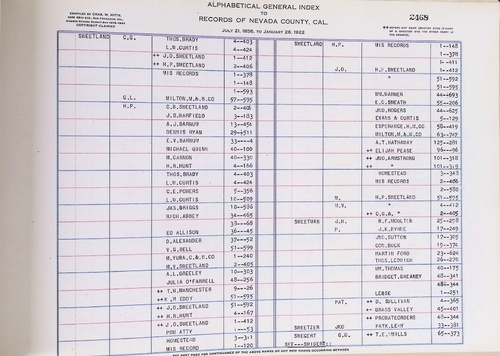 ALPHABETICAL GENERAL INDEX
COMPILED BY CHAS. W. KITTS
TO
RECORDS OF NEVADA COUNTY, CAL.
COPYRIGHT CLAIMED
2468
JULY 21, 1856, TO JANUARY 26, 1922
SHEETLAND C.G. THOS. BRADY 4--403
L.W. CURTIS 4--424
++ J.O. SHEETLAND 4--412
++ H.P. SHEETLAND 2--406
MIS RECORDS 1--378
1--148
1--593
G.L. MILTON, M.& W. CO 57--595
H.P. C.G. SHEETLAND 2--405
J.D. BARFIELD 3--183
A.J. BARNUM 13--454
DENNIS RYAN 29--511
E.V. BARNUM 33----4
MICHAEL QUINN 40--100
M. CANNON 40--330
H.R. HUNT 4--166
THOS. BRADY 4--403
L.W. CURTIS 4--424
C.E. POWERS 5--356
L.W. CURTIS 10--509
JAS. BRIGGS 10--586
RICH. ABBEY 34--465
38--68
ED ALLISON 36--45
D. ALEXANDER 37--52
V.G. BELL 51--599
M. YUBA, C. & W. CO 1--240
M.V. SHEETLAND 2--405
A.L. GREELEY 10--303
JULIA O'FARRELL 48--256
++ T.W. MANCHESTER 9--26
++ M EDDY 51--595
++ J.O. SHEETLAND 51--592
++ H.R. HUNT 4--167
++ J.O. SHEETLAND 1--412
POW ATTY 1--53
HOMESTEAD 3--311
MIS RECORD 1--120
SHEETLAND H.P. MIS RECORDS 1--148
1--378
1--411
J.O. H.P. SHEETLAND 1--412
" 51--592
51--595
WM. WARNER 44--693
E.G. SHEATH 55--206
JNO. ROGERS 44--605
EVANS & CURTIS 5--129
ESPERANCE, M, W, CO 58--419
MILTON, M. & W. CO 63--747
A.T. HATHADAY 125--281
++ ELIJAH PEASE 96--96
++ JNO. ARMSTRONG 101--318
++ " 101--319
HOMESTEAD 3--348
MIS RECORDS 2--406
2--580
M. H.P. SHEETLAND 51--595
M.V. " 4--412
++ C.G.& " 2--405
SHEETMAN J.H. B.F. MOULTIN 25--298
P. J.K. BYRNE 17--249
JNO. SUTTON 17--305
CON. BUCK 19--374
MARTIN FORD 23--624
26--270
WM. THOMAS 40--175
BRIDGET, GHEANY 48--341
48--344
LEASE 1--251
PAT. ++ D. SULLIVAN 4--365
++ GRASS VALLEY 45--401
++ PROBATEORDER 48--344
SHEETZER JNO PATK. LEHY 33--381
SHEGERT G.H. ++ T.E. MILLS 65--373
SEE--:SHIGERT::